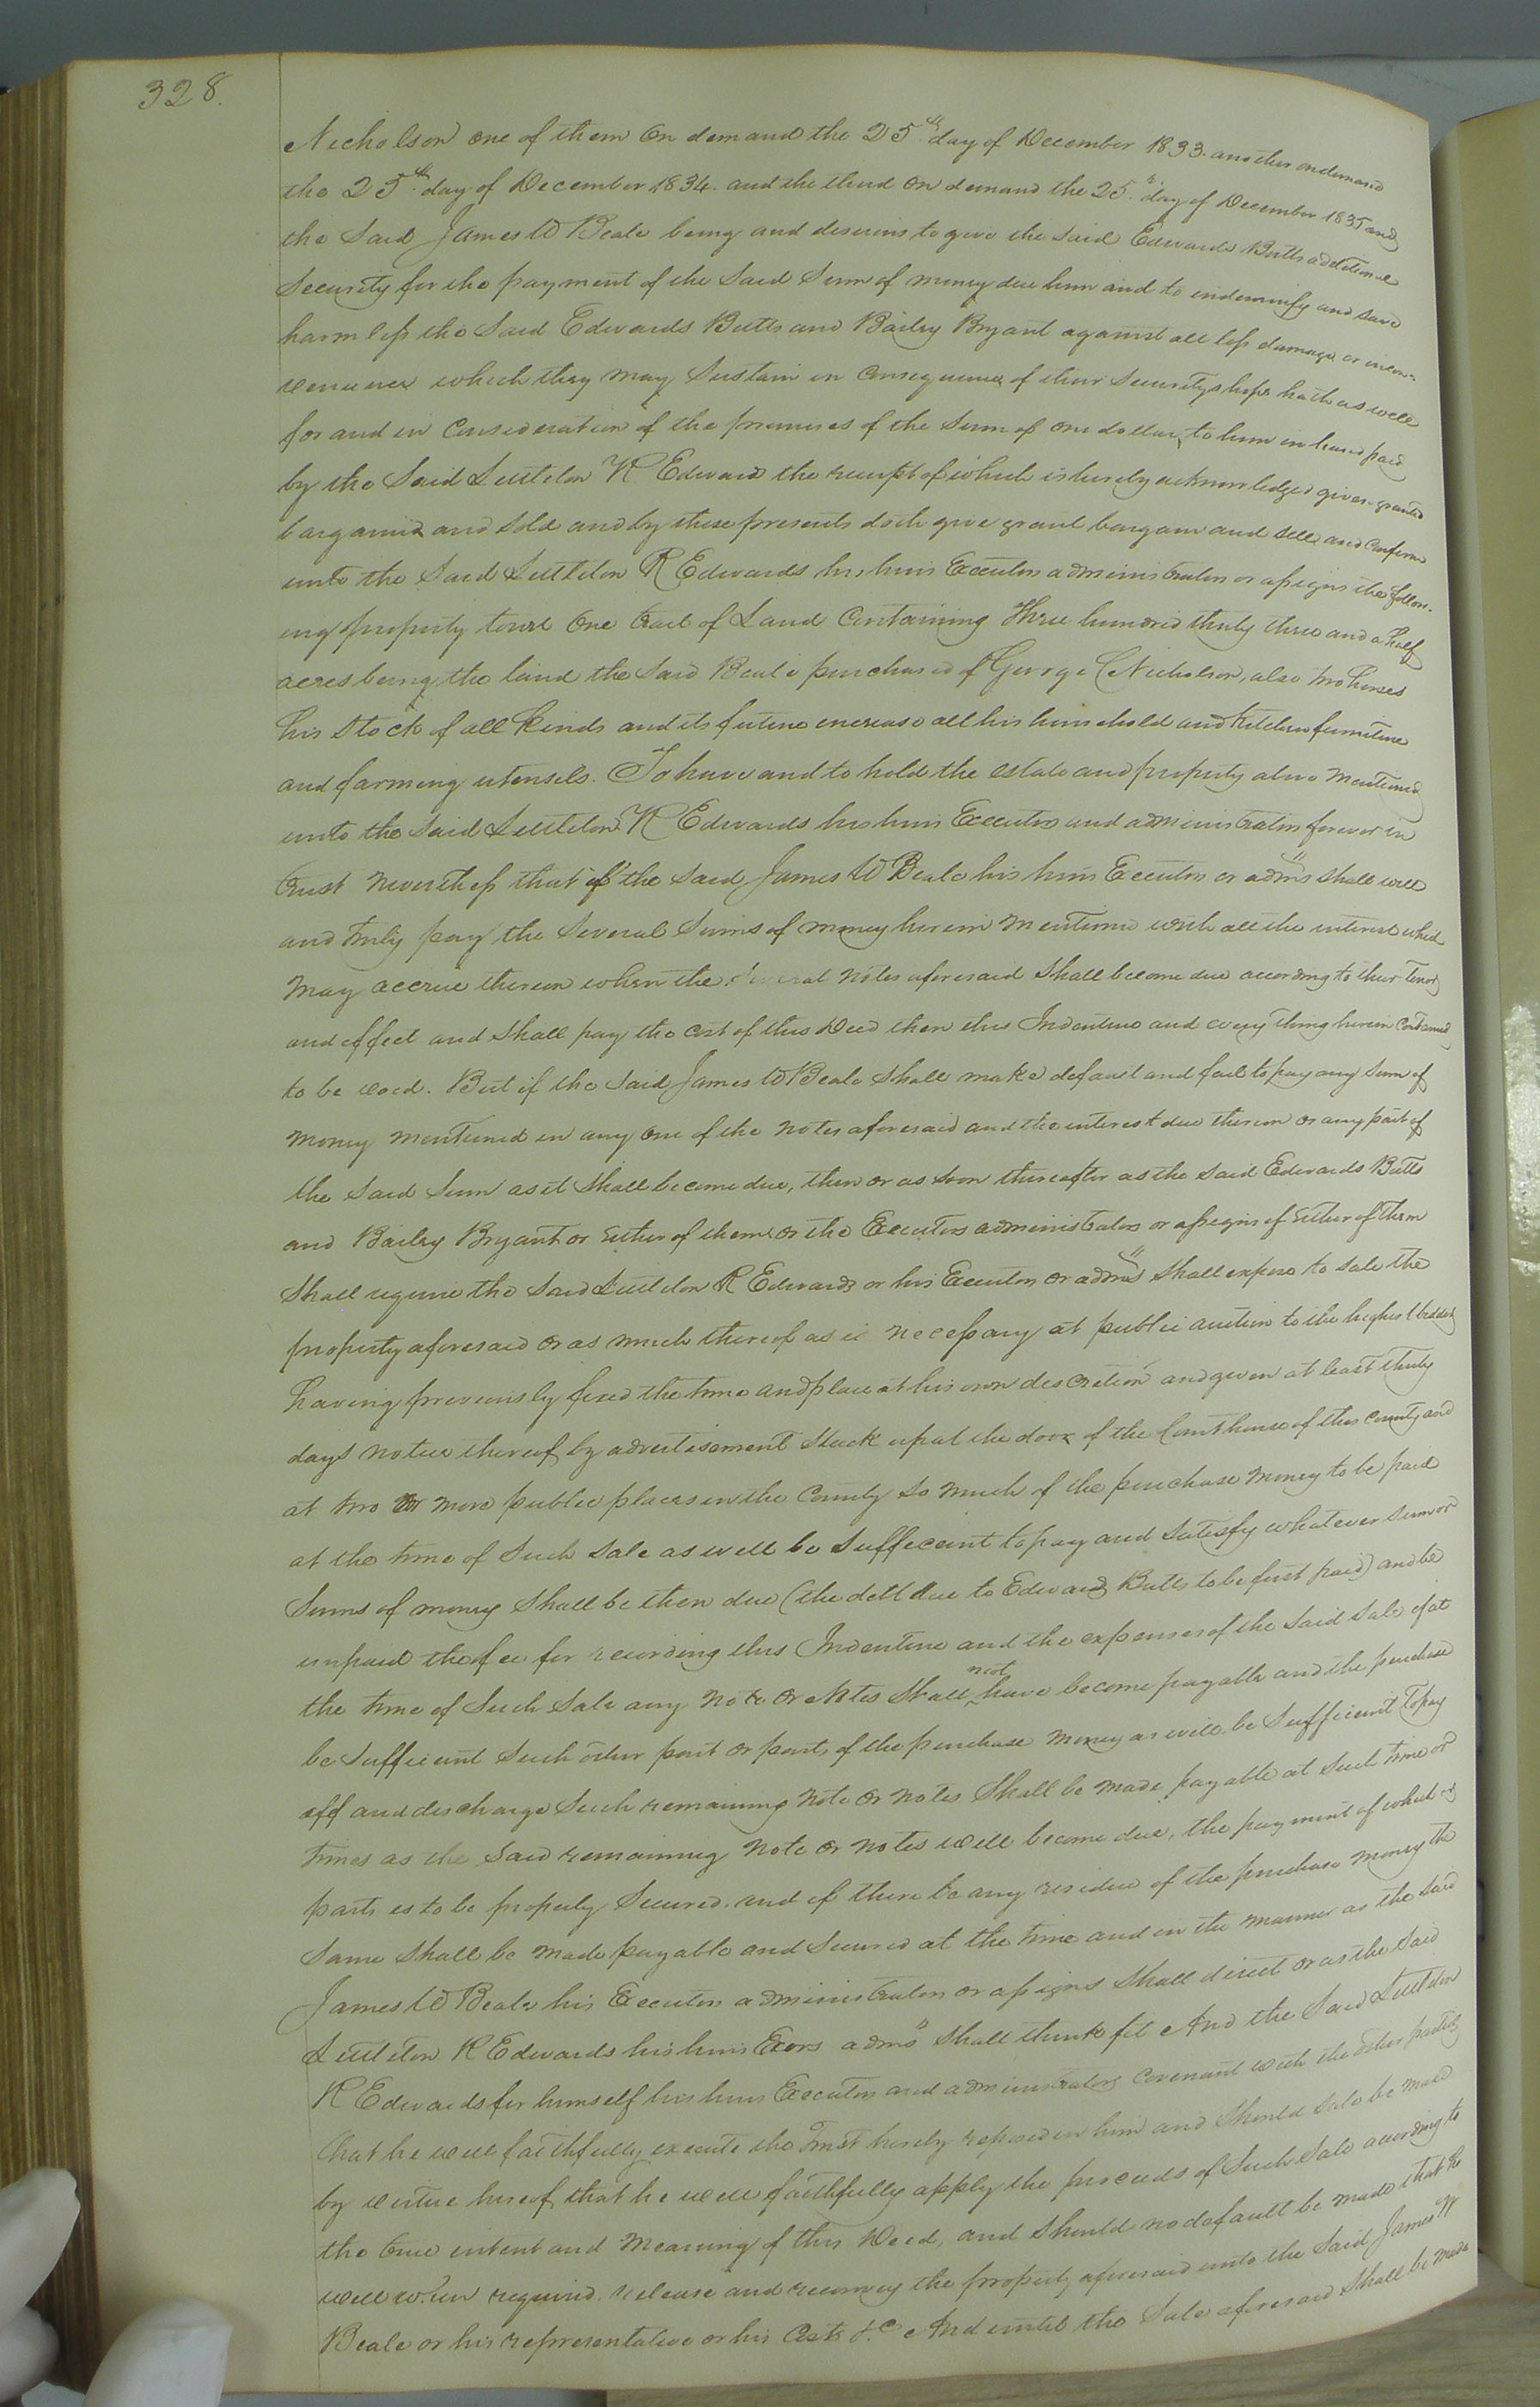 328.
Nicholson one of them on demand the 25th day of December 1833. another on demand
the 25th day of December 1834. and the third on demand the 25th day of December 1835 and
the said James W Beale being and desirins to give the said Edwards Butts additional
Security for the payment of the said Sum of money due him and to indemnify and save
harmless the said Edwards Butts and Bailey Bryant against all loss damage or incon-
venience which they may Sustain in Consequence of their Securityships hath as well
for and in Consideration of the premises of the Sum of one dollar, to him in hand paid
by the Said Littleton R Edwards the receipt of which is hereby acknowledged given granted
bargained and sold and by these presents doth give grant bargain and sell and Confirm
unto the Said Littleton R Edwards his heirs Executors administrators or assigns the follow-
ing property towit One tract of Land Containing Three hundred thirty three and a half
acres being the land the said Beale purchased of George C Nicholson, also two horses
his Stock of all Kinds and its future increase all his household and Kitchen furniture
and farming utensels. To have and to hold the estate and property above mentioned
unto the said Littleton R Edwards his heirs Executors and administrators forever in
trust nevertheless that if the said James W Beale his heirs Executors or adms shall well
and truly pay the Several Sums of money herein mentioned with all the interest which
may accrue thereon when the Several notes aforesaid shall become due according to their tenor
and effect and shall pay the cost of this Deed then this Indenture and every thing herein Contained
to be void. But if the said James W Beale shall make default and fail to pay any sum of
money mentioned in any one of the notes aforesaid and the interest due thereon or any part of
the said sum as it shall become due, then or as soon thereafter as the said Edwards Butts
and Bailey Bryant or either of them or the Executors administrators or assigns of either of them
shall require the said Littleton R Edwards or his Executors or adms shall expose to sale the
property aforesaid or as much thereof as is necessary at public auction to the highest bidder
having previously fixed the time and place at his own descretion and given at least thirty
days notice thereof by advertisement stuck up at the door of the Courthouse of this County and
at two or more public places in the County so much of the purchase money to be paid
at the time of Such sale as will be Sufficeint to pay and Satisfy whatever sum or
Sums of money shall be then due (the debt due to Edwards Butts to be first paid) and be
unpaid the fee for recording this Indenture and the expenses of the said sale if at
the time of Such Sale any note or notes shall not have become payable and the purchase
be sufficient Such other part or parts of the purchase money as will be Sufficient to pay
off and discharge Such remaining note or notes shall be made payable at such time or
times as the said remaining note or notes will become due, the payment of which
parts is to be properly Secured. and if there be any residue of the purchase money the
same shall be made payable and secured at the time and in the manner as the said
James W Beale his Executors administrators or assigns shall direct or as the said
Littleton R Edwards his heirs Exors adms shall think fit And the said Littleton
R Edwards for himself his heirs Executors and administrators Covenant with the other parties
that he will faithfully execute the Trust hereby reposed in him and should sale be made
by virtue hereof that he will faithfully apply the proceeds of Such Sale according to
the true intent and meaning of this Deed, and should no default be made that he
will when required. release and reconvey the property aforesaid unto the said James W
Beale or his representative or his &c And until the Sale aforesaid shall be made